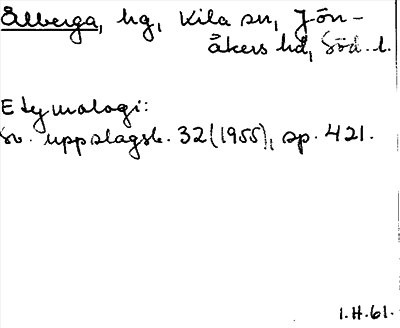 Ålberga, hg, Kila sn, Jön-
åkers hd, Söd. l.
Etymologi:
Sv. uppslagsb. 32 (1955), sp. 421.
1.H.61.